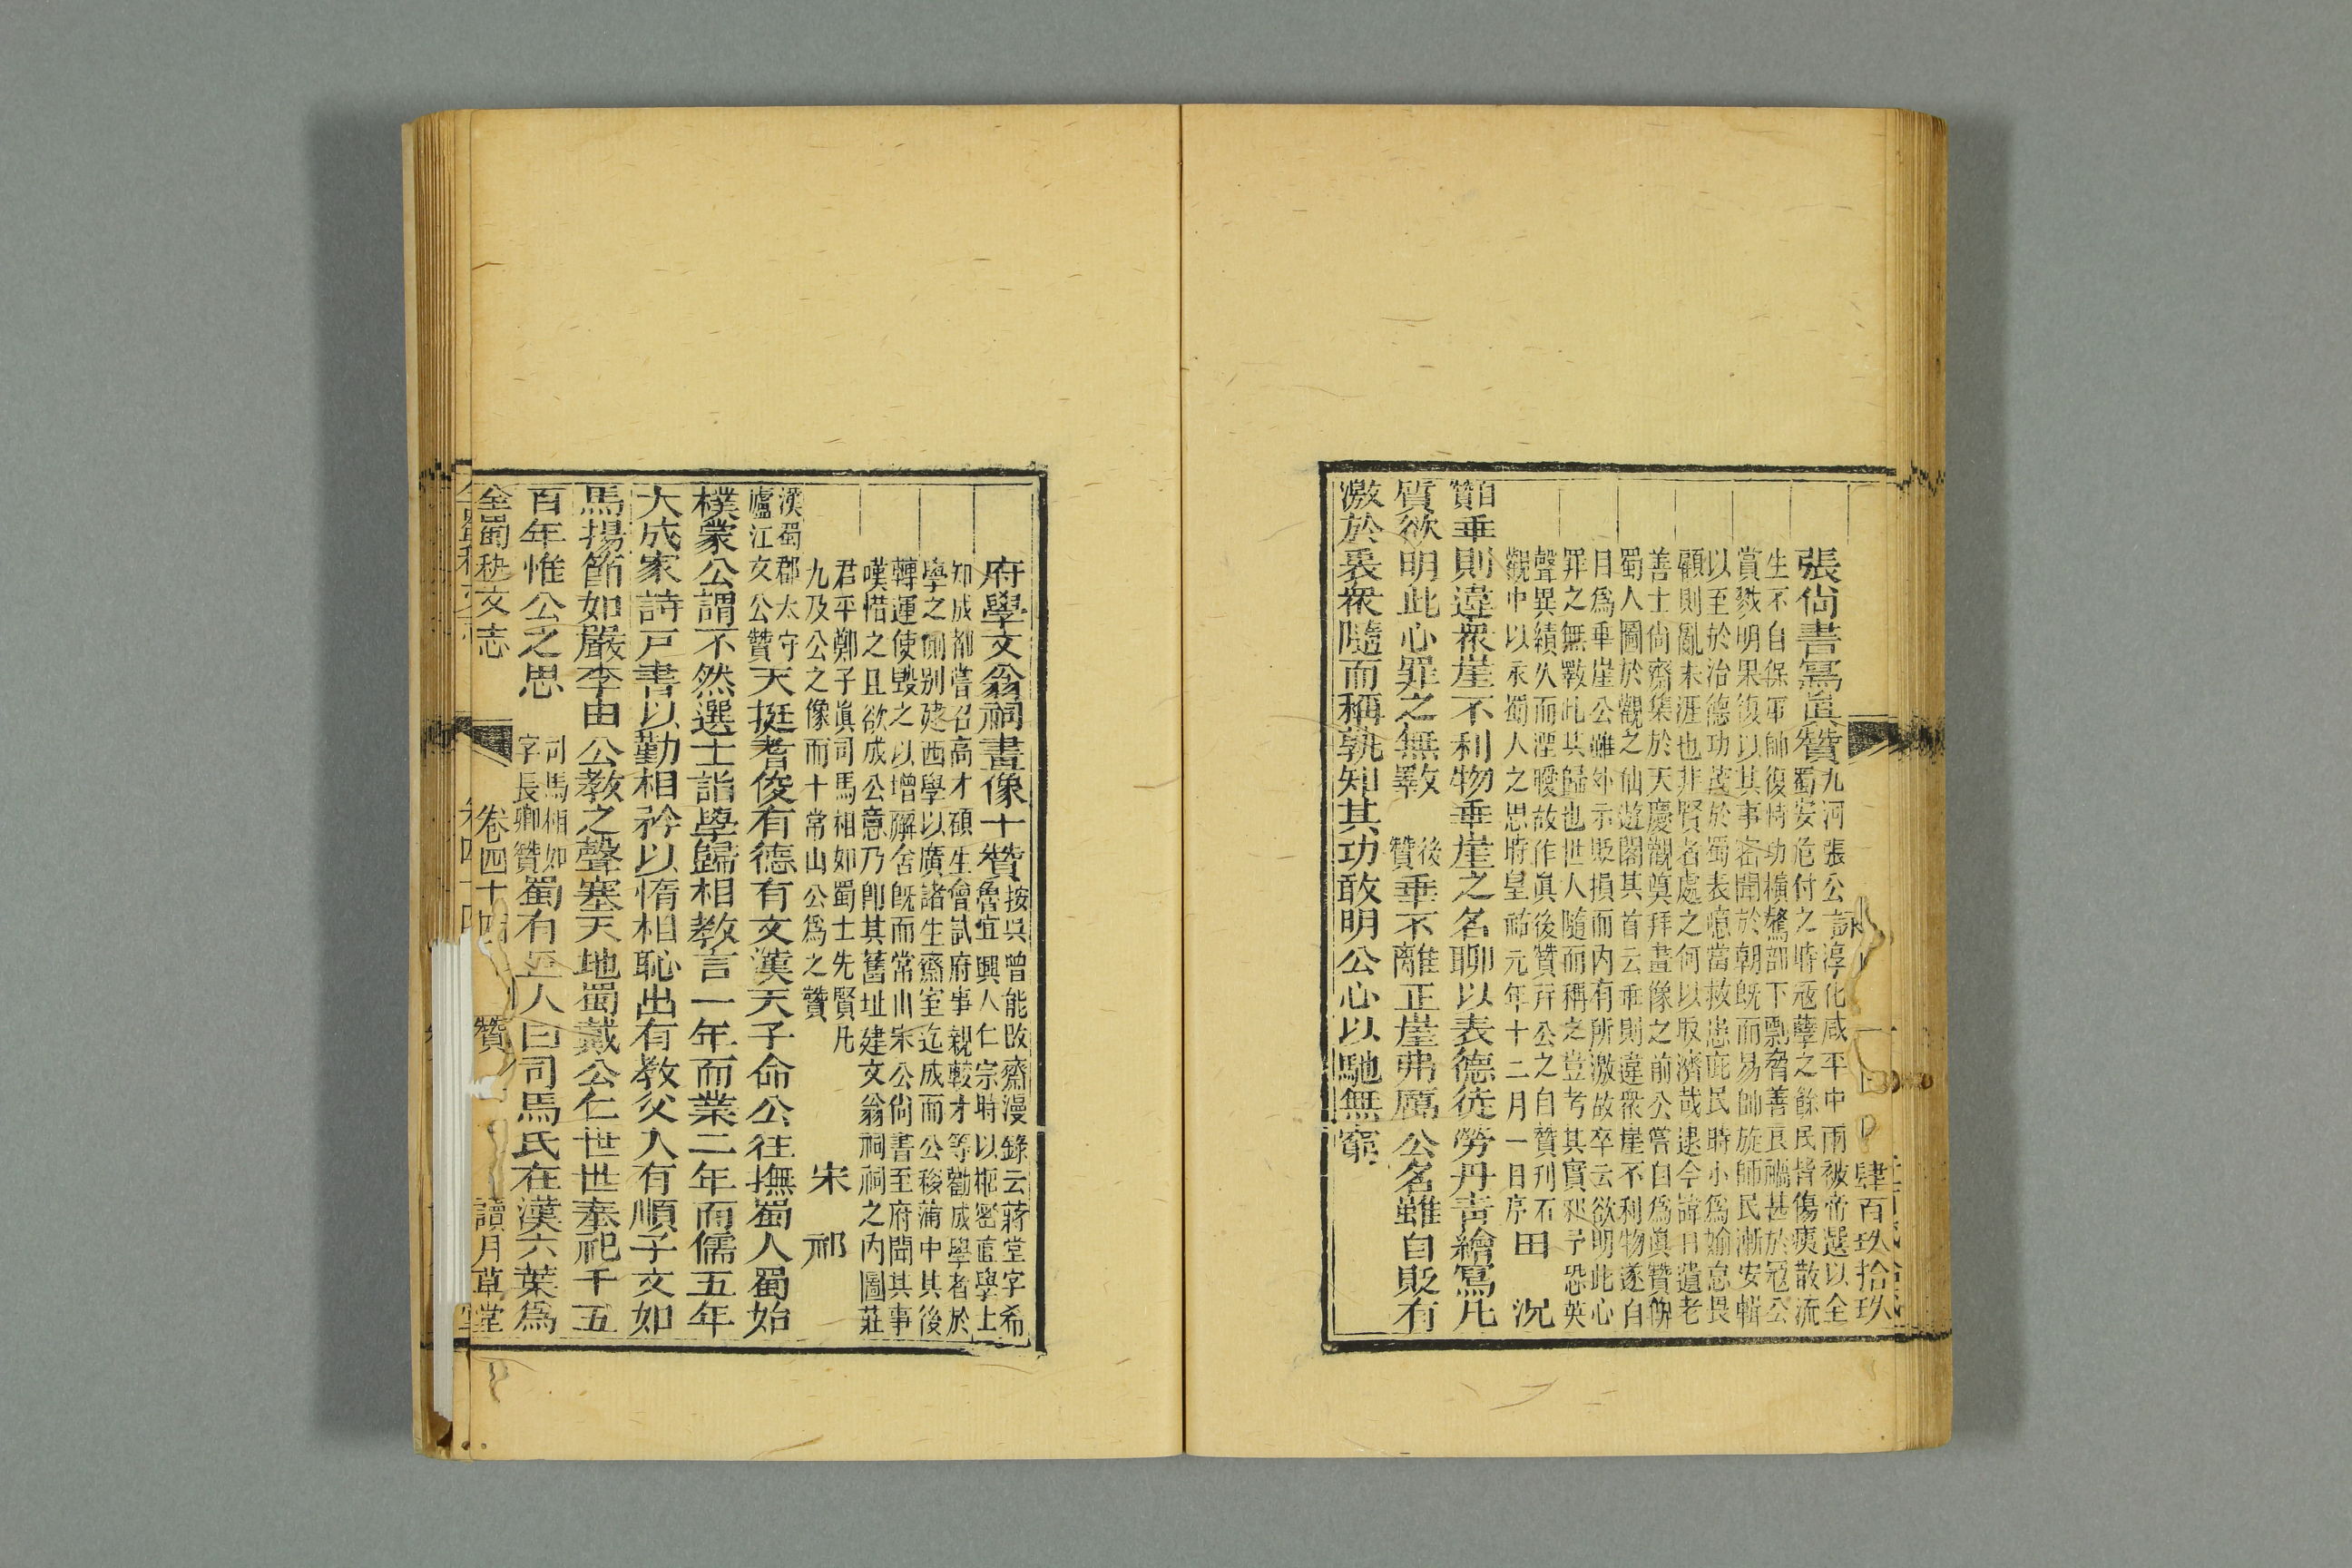 肆百玖拾玖
張尙書寫眞贊
九河張公詠淳化咸平中兩被帝選以全
蜀安危付之時𡨥孽之餘民皆傷痍散流
生不自保軍帥復恃功橫驁部下剽脅善良禍甚於𡨥公
賞戮明果復以其事密聞於朝旣而易帥旋師民漸安輯
以至於治德功茂於蜀表德當救患庇民時小爲媮怠畏
顧則亂未涯也非賢者處之何以取濟哉逮今諱日遺老
善士尙齋集於天慶觀奠拜畫像之前公嘗自爲眞贊俾
蜀人圖於觀之仙遊閣其首云乖則違衆崖不利物遂自
目爲乖崖公雖外示貶損而內有所激故卒云欲明此心
罪之無斁此其歸也世人隨而稱之豈考其實耶予恐英
聲異績久而湮曖故作眞後贊幷公之自贊刊石
觀中以永蜀人之思時皇祐元年十二月一日序
田況
自贊
乖則違衆崖不利物乖崖之名聊以表德徒勞丹靑繪寫凡
質欲明此心罪之無斁
後贊
乖不離正崖弗厲公名雖自貶有
激於裏衆隨而稱孰知其功敢明公心以馳無窮
府學文翁祠畫像十贊
按吳曾能改齋漫錄云蔣堂字希
魯宜興人仁宗時以樞密直學士
知成都嘗召高才碩生會試府事親較才等勸成學者於
學之側別建西學以廣諸生齋室迄成而公移蒲中其後
轉運使毀之以增廨舍旣而常山宋公尙書至府聞其事
嘆惜之且欲成公意乃卽其舊址建文翁祠祠之內圖莊
君平鄭子眞司馬相如蜀士先賢凡
九及公之像而十常山公爲之贊
宋祁
漢蜀郡太守
廬江文公贊
天挺耆俊有德有文漢天子命公往撫蜀人蜀始
樸蒙公謂不然選士詣學歸相敎言一年而業二年而儒五年
大成家詩戶書以勤相矜以惰相恥出有敎父入有順子文如
馬揚節如嚴李由公敎之聲塞天地蜀戴公仁世世奉祀千五
百年惟公之思
司馬相如
字長卿贊
蜀有巨人曰司馬氏在漢六葉爲
全蜀秇文志
卷四十四
贊
讀月草堂